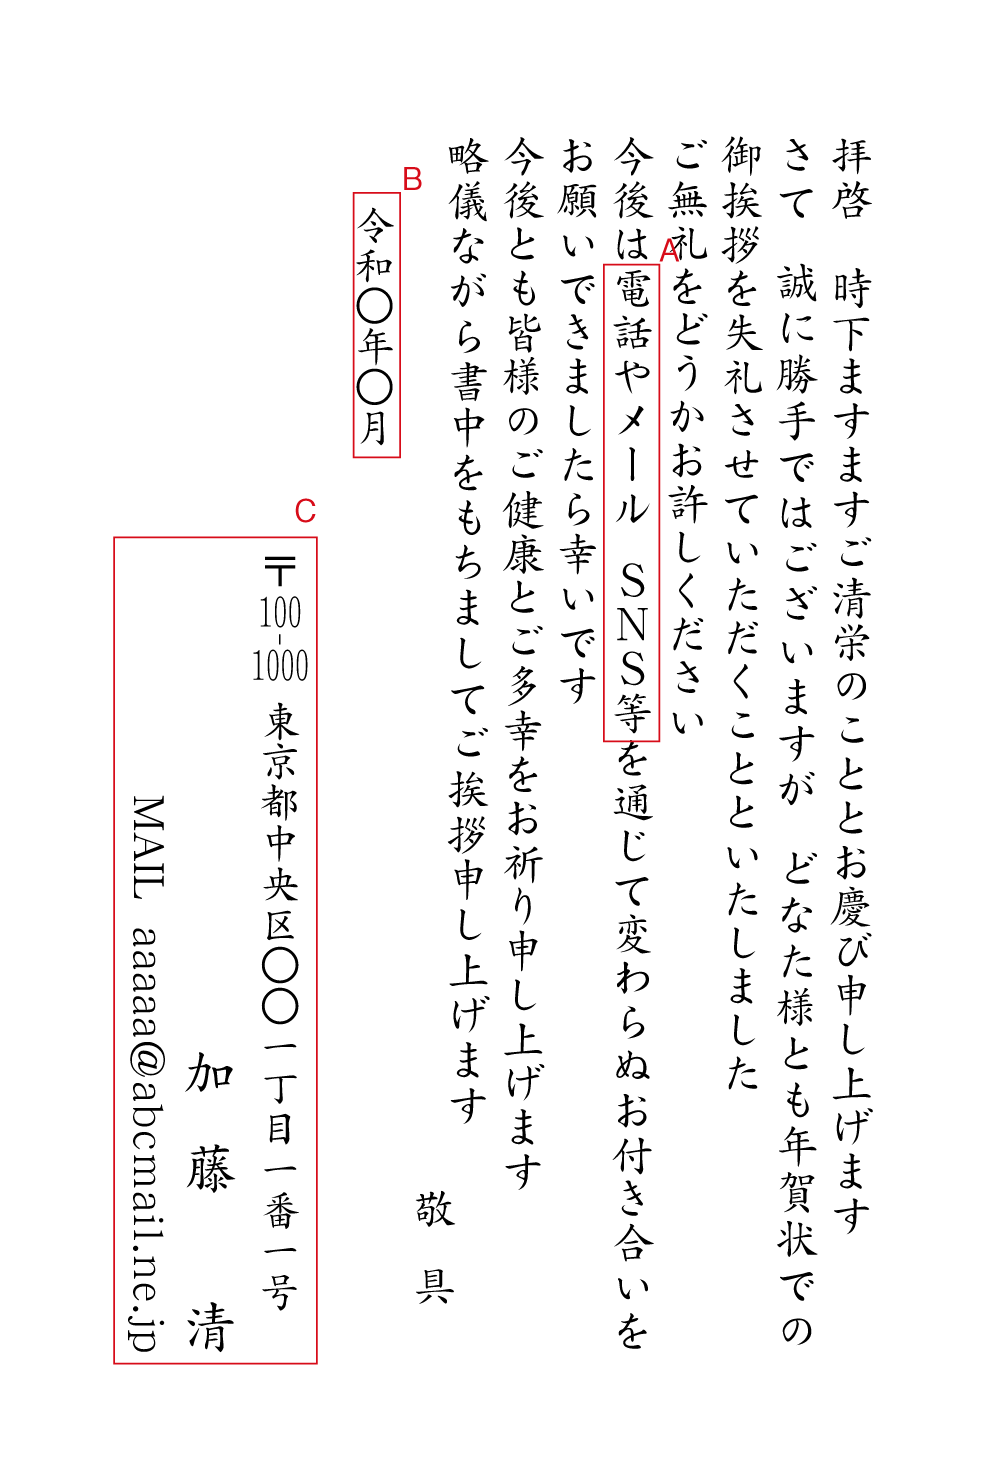 拝啓　時下ますますご清栄のこととお慶び申し上げます
さて　誠に勝手ではございますが　どなた様とも年賀状での
御挨拶を失礼させていただくことといたしました
ご無礼をどうかお許しください
A
今後は電話やメール　SNS等を通じて変わらぬお付き合いを
お願いできましたら幸いです
今後とも皆様のご健康とご多幸をお祈り申し上げます
略儀ながら書中をもちましてご挨拶申し上げます
敬具
B
令和〇年〇月
C
〒100-1000 東京都中央区〇〇一丁目一番一号
加藤　清
MAIL aaaaa@abcmail.ne.jp